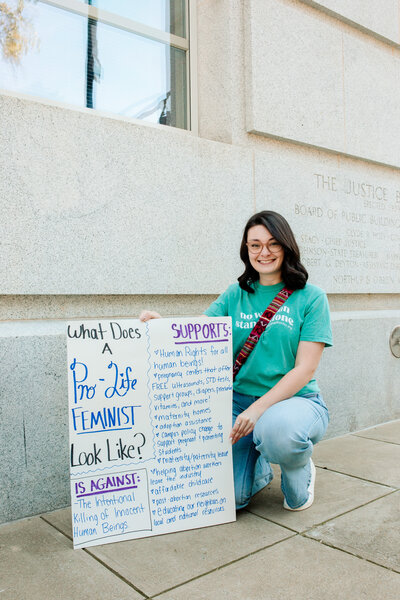 What Does
A
Pro-Life
FEMINIST
Look Like?
IS AGAINST:
The Intentional
Killing of Innocent
Human Beings.
SUPPORTS:
Human Rights for all
human beings!
pregnancy centers that offer
FREE ultrasounds, STD tests,
support groups, diapers, prenatal
vitamins, and more!
maternity homes
adoption assistance
campus policy change to
support pregnant & parenting
students
maternity/paternity leave
helping abortion workers
leave the industry
affordable childcare
post-abortion resources
educating our neighbors on
local and national resources
no woman
stands alone
THE JUSTICE B
BOARD OF PUBLIC BUILDING